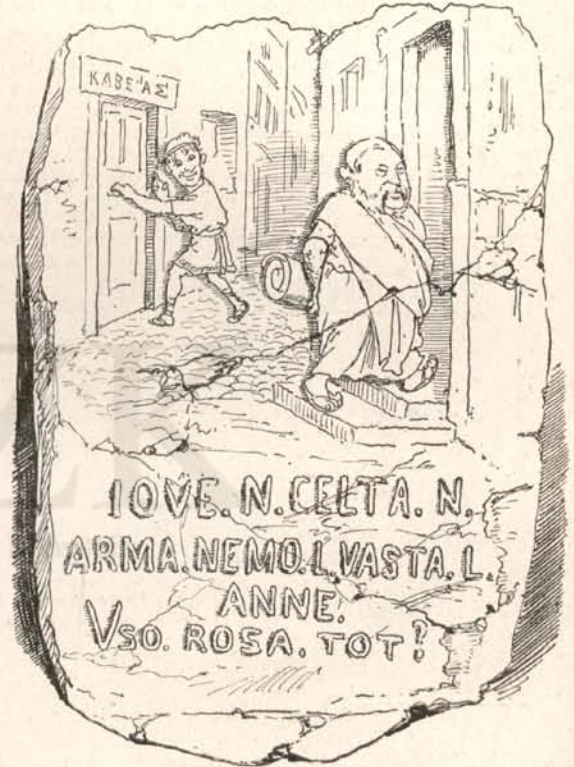 ΚΑΒΕ"ΑΣ
IOVE. N. CELTA. N.
ARMA. NEMO. L. VASTA. L.
ANNE.
VSO. ROSA. TOT?